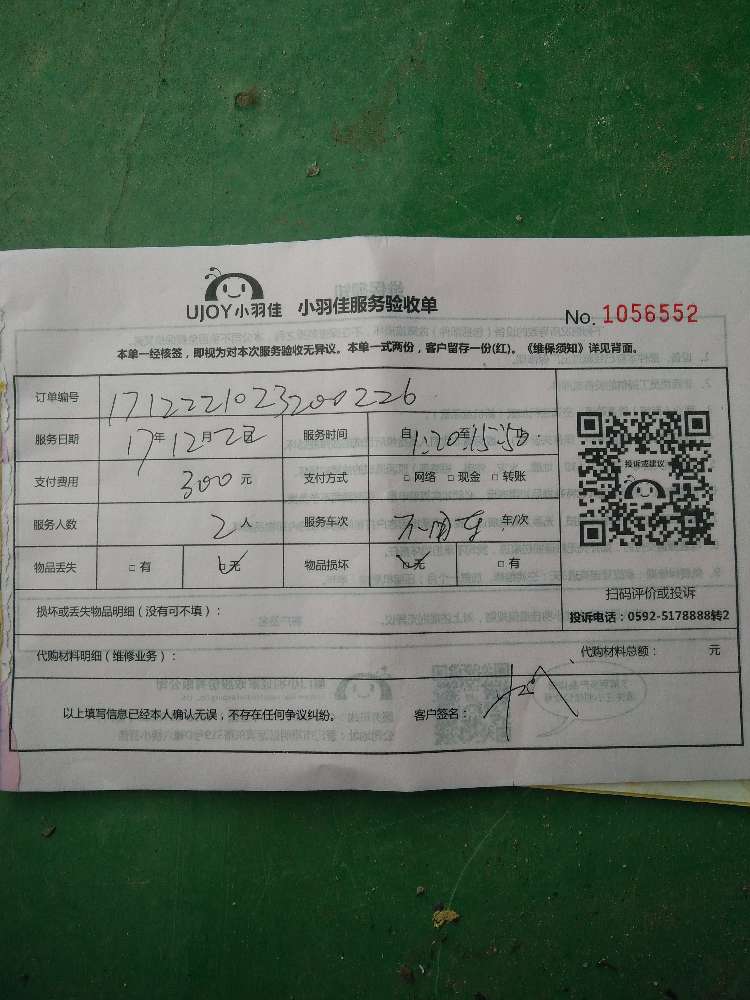 UJOY小羽佳 小羽佳服务验收单
No. 1056552
本单一经核签，即视为对本次服务验收无异议。本单一式两份，客户留存一份(红)。《维保须知》详见背面。
订单编号 1712221023200226
服务日期 17年12月 服务时间 自1:20至15:50
支付费用 300元 支付方式 □网络 □现金 □转账
投诉或建议
服务人数 2人 服务车次 不用车 车/次
物品丢失 □有 □无 物品损坏 □无 □有
扫码评价或投诉
损坏或丢失物品明细（没有可不填）：
投诉电话：0592-5178888转2
代购材料明细（维修业务）： 代购材料总额： 元
以上填写信息已经本人确认无误，不存在任何争议纠纷。 客户签名：